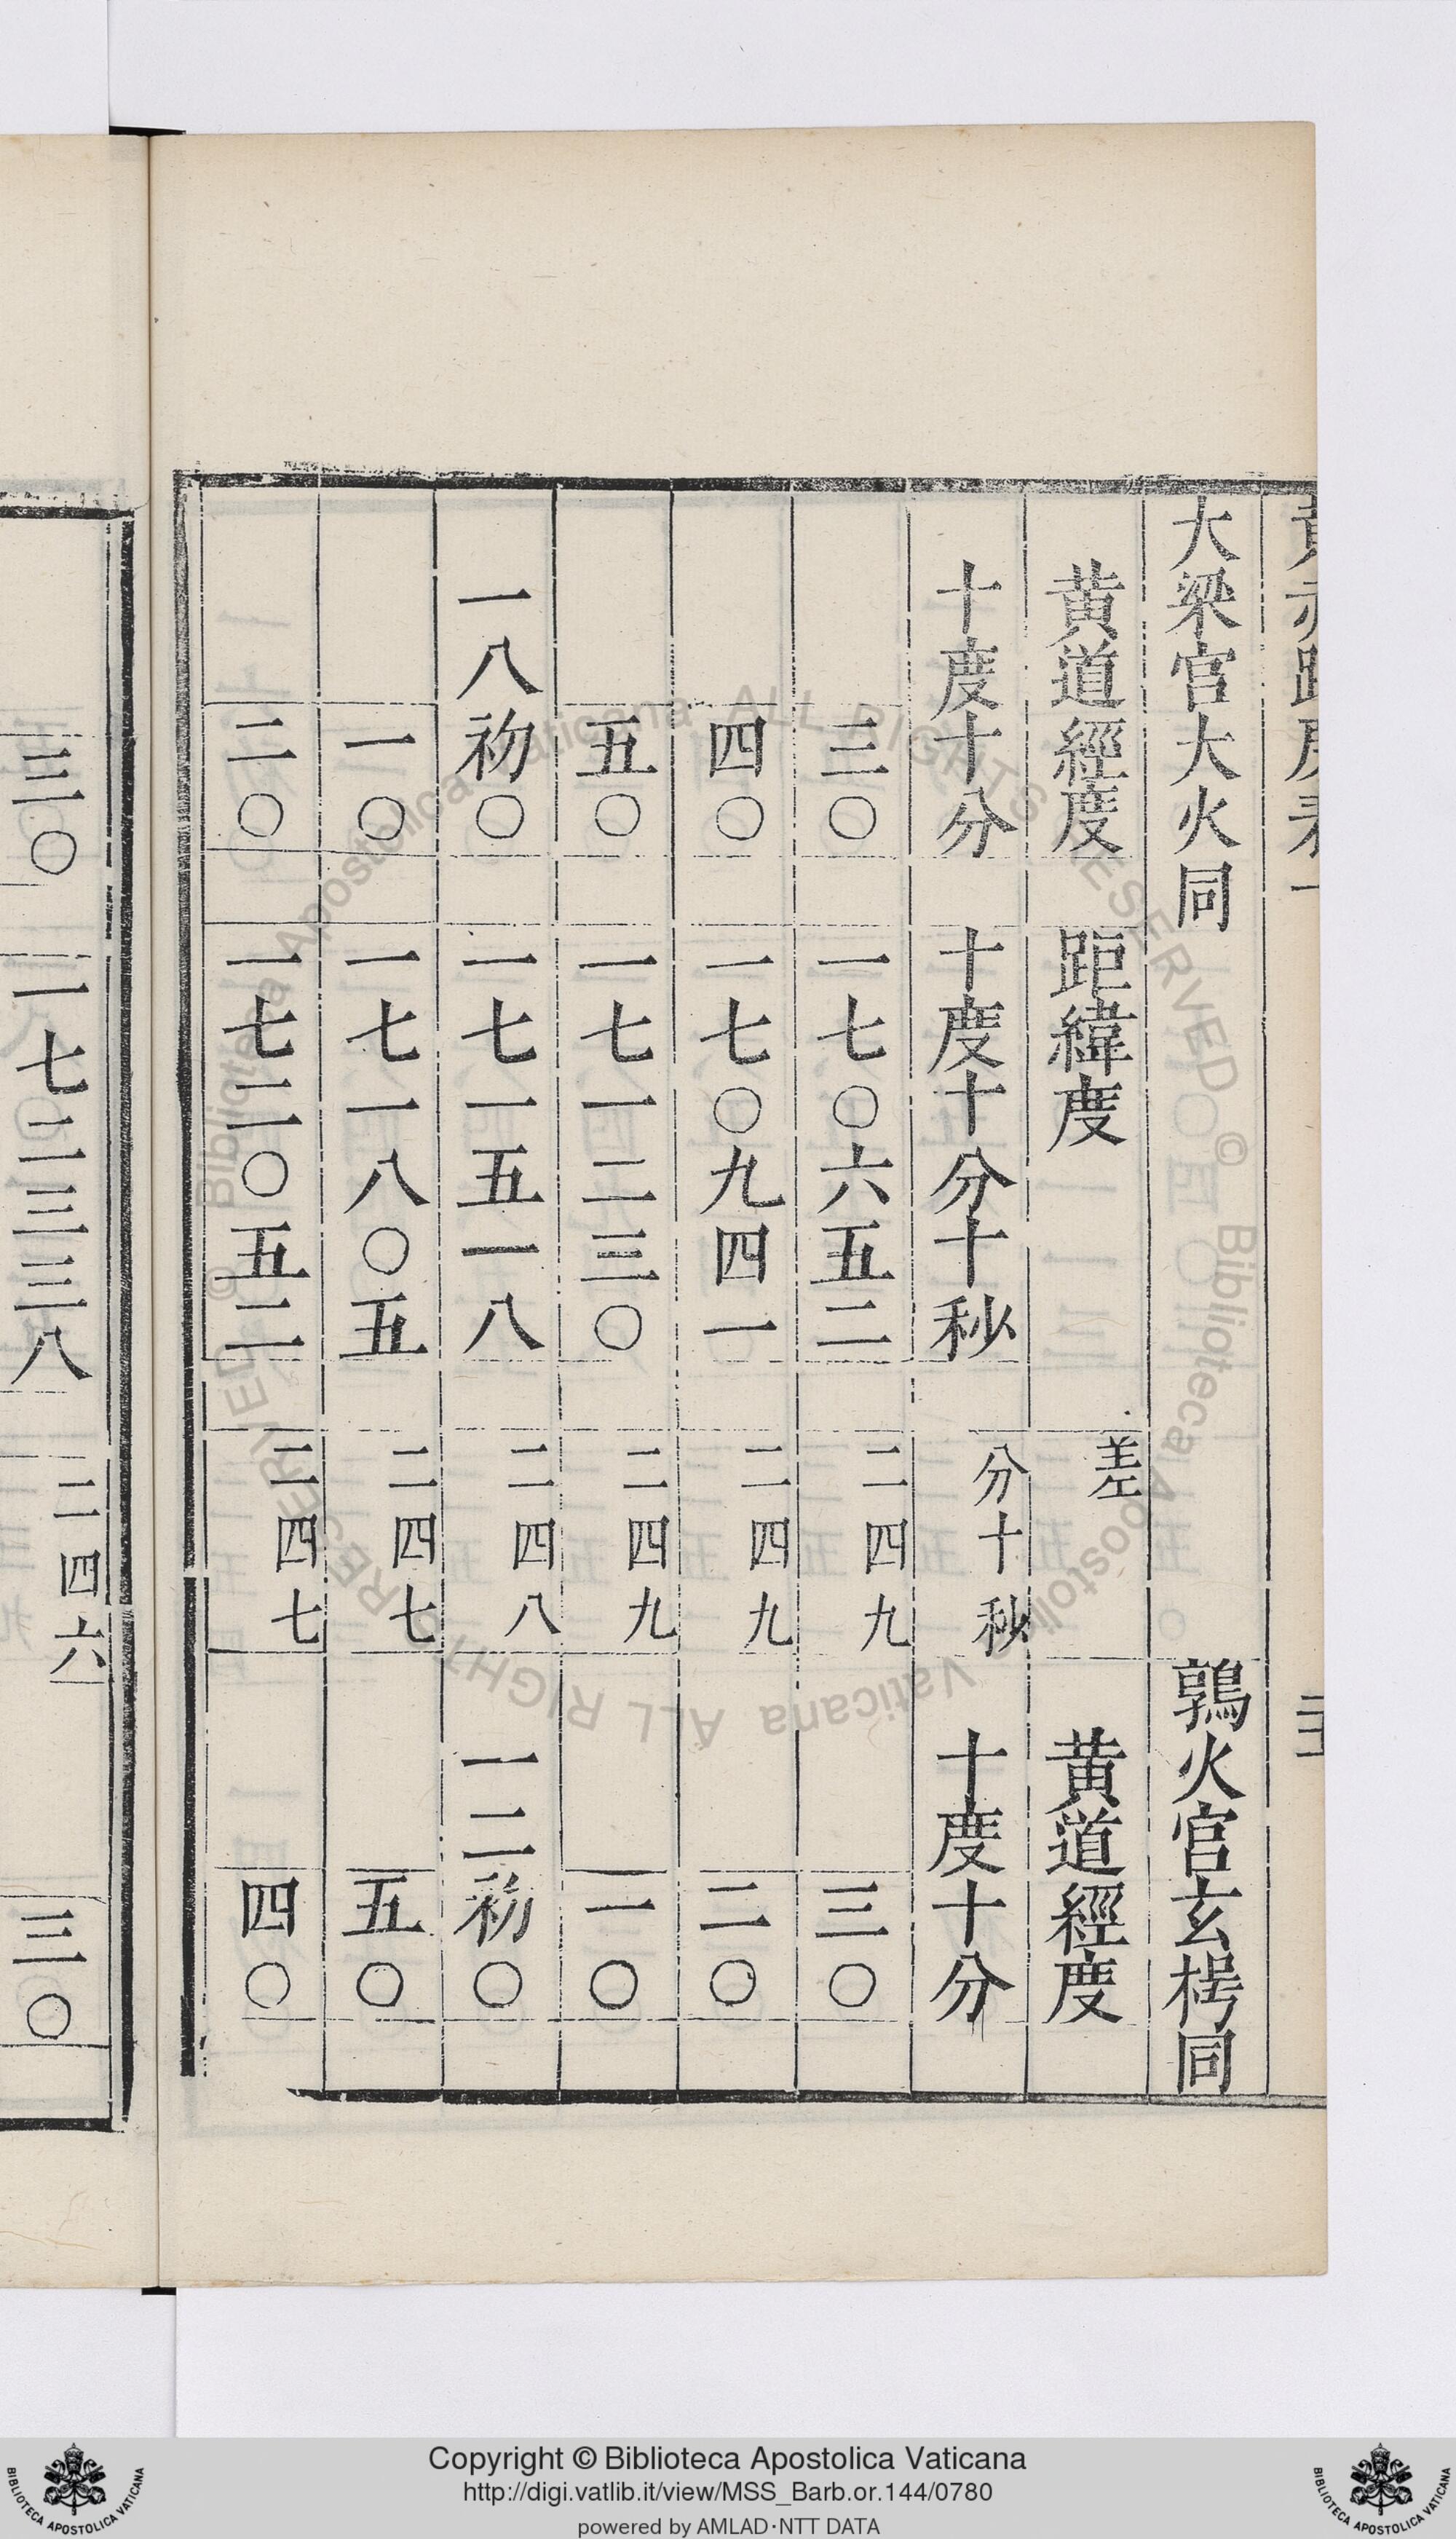 大梁官大火同 鶉火官玄枵同
黄道經度 距緯度 差 黄道經度
十度十分 十度十分十秒 分十秒 十度十分
三〇 一七〇六五二 二四九 三〇
四〇 一七〇九四一 二四九 二〇
五〇 一七一二三〇 二四九 一〇
一八初〇 一七一五一八 二四八 一二初〇
一〇 一七一八〇五 二四七 五〇
二〇 一七二〇五二 二四七 四〇
三〇 一七二三三八 二四六 三〇
© Biblioteca Apostolica Vaticana ALL RIGHTS RESERVED
© Biblioteca Apostolica Vaticana ALL RIGHTS RESERVED
BIBLIOTECA APOSTOLICA VATICANA
Copyright © Biblioteca Apostolica Vaticana
http://digi.vatlib.it/view/MSS_Barb.or.144/0780
powered by AMLAD·NTT DATA
BIBLIOTECA APOSTOLICA VATICANA